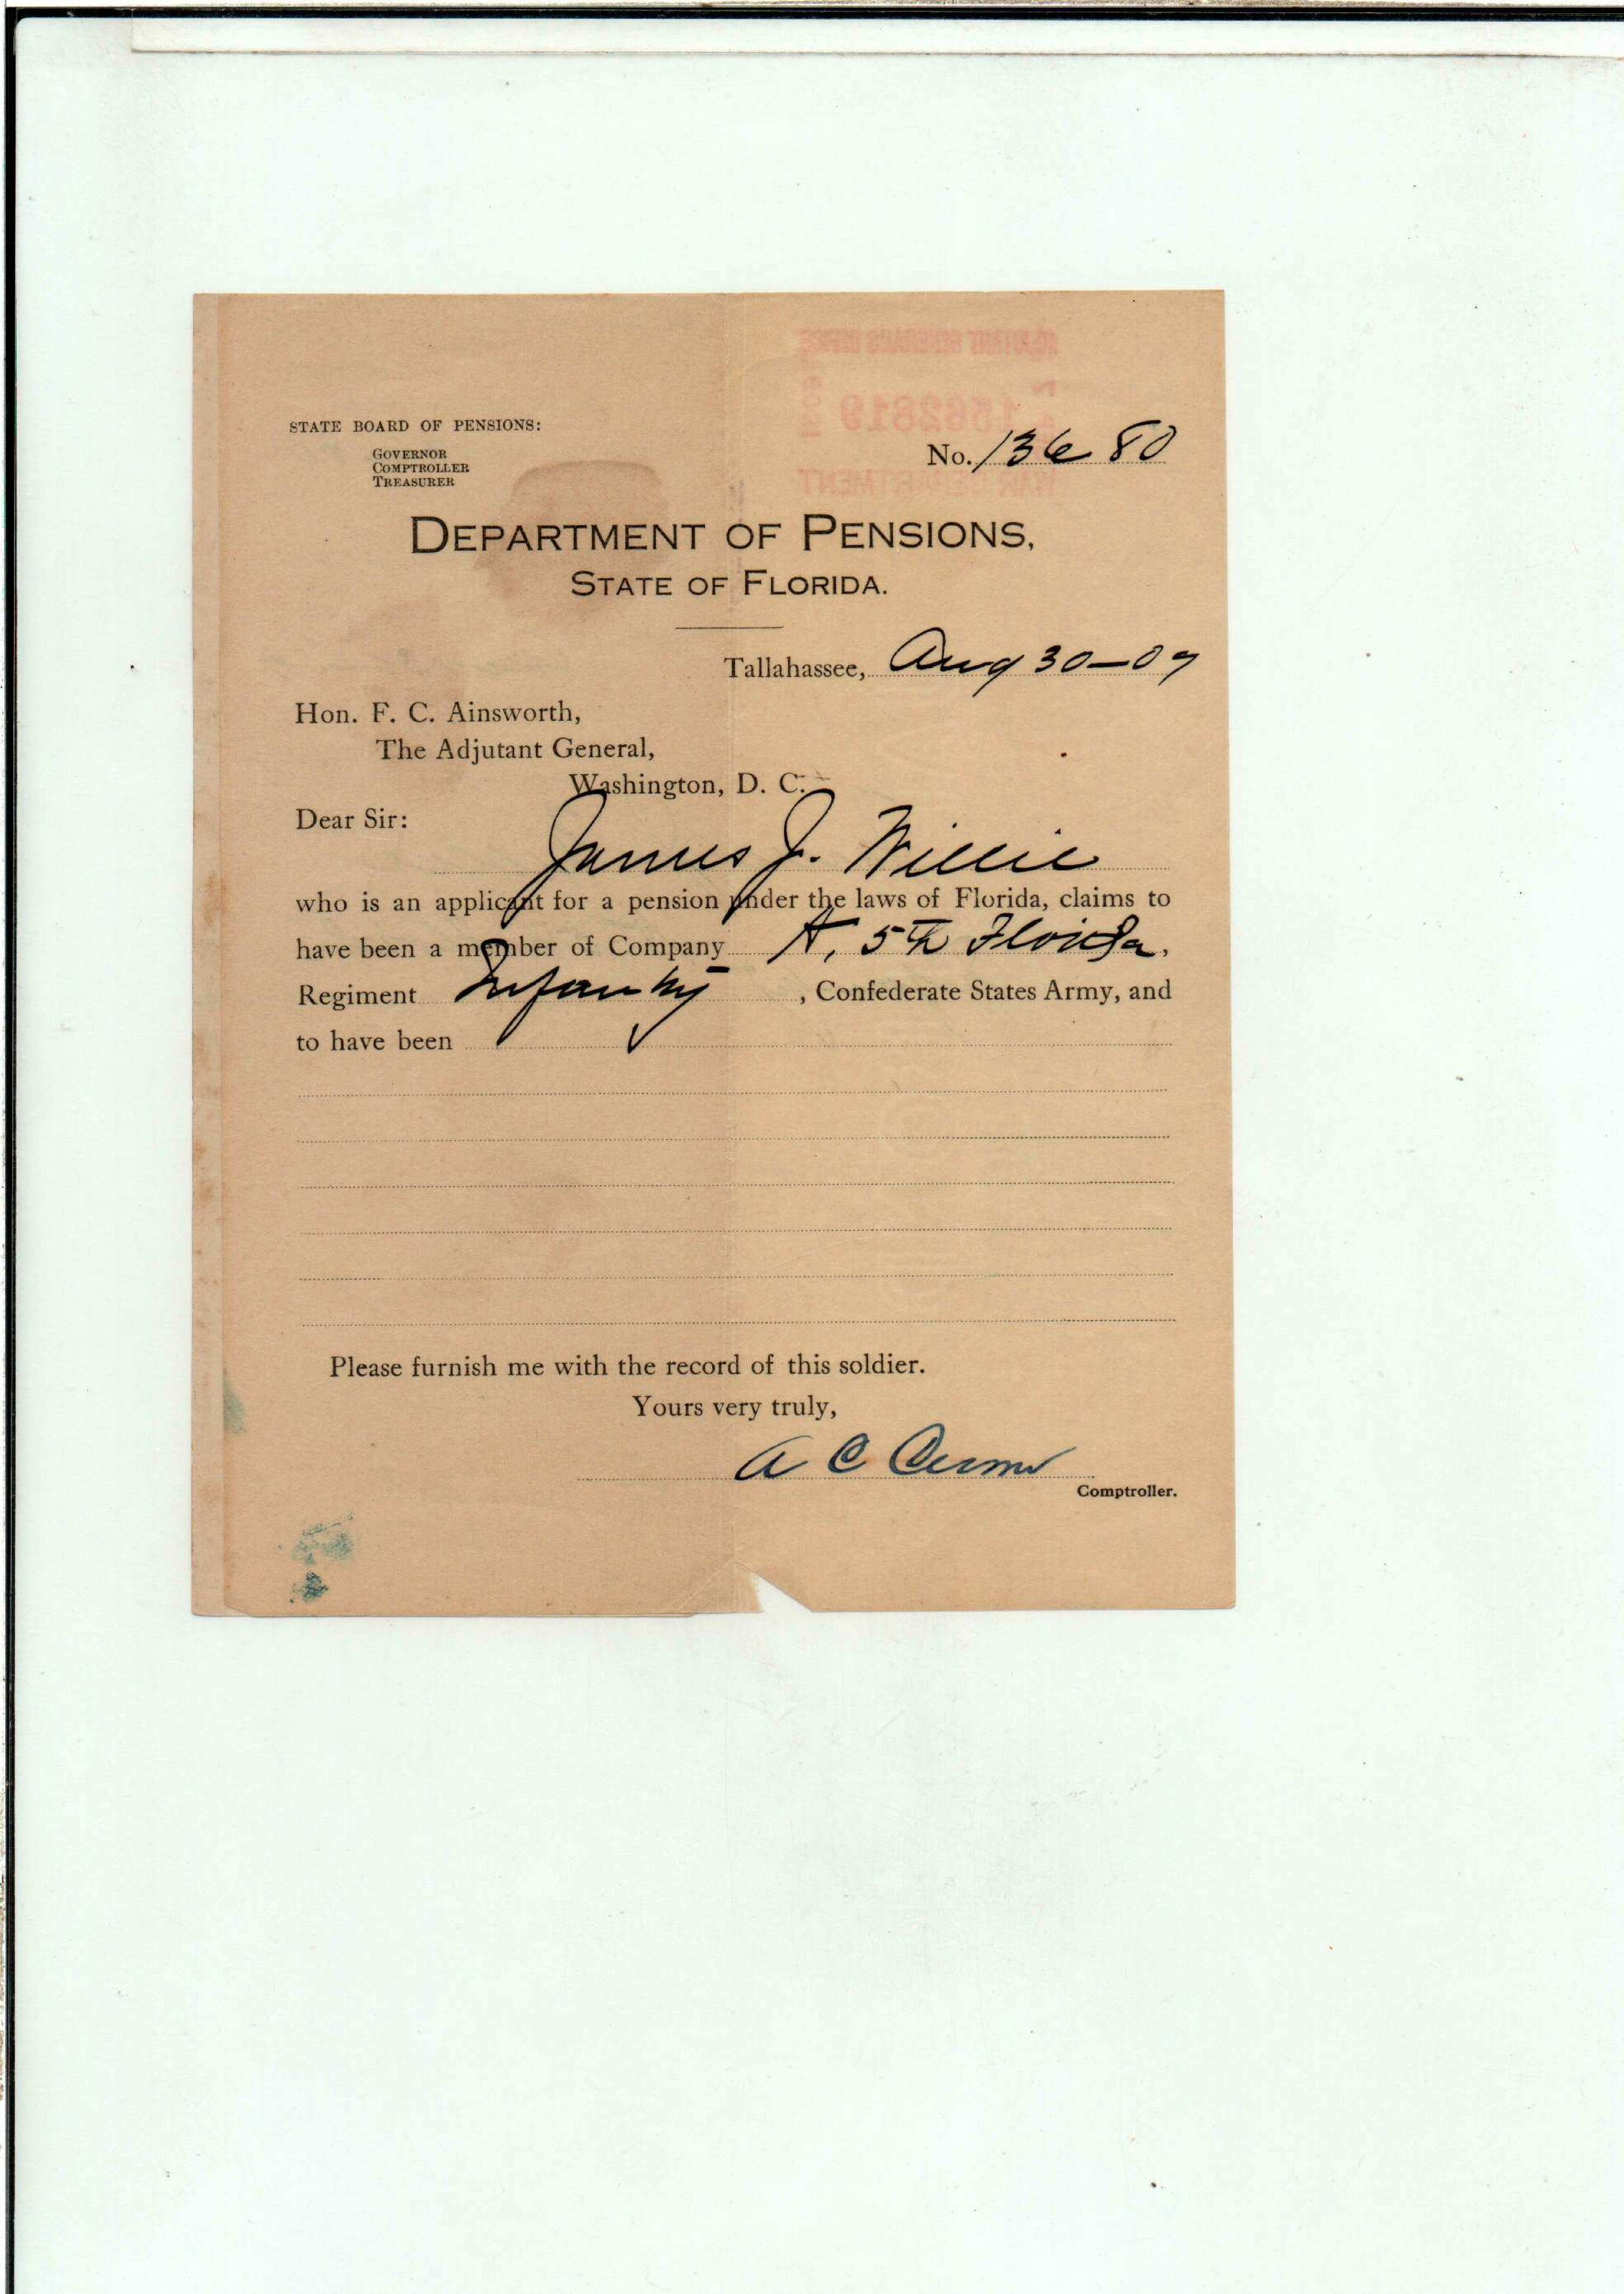 STATE BOARD OF PENSIONS:
GOVERNOR
COMPTROLLER
TREASURER
No. 13680
DEPARTMENT OF PENSIONS,
STATE OF FLORIDA.
Tallahassee, Aug 30-09
Hon. F. C. Ainsworth,
The Adjutant General,
Washington, D. C.
Dear Sir:
James J. Willie
who is an applicant for a pension under the laws of Florida, claims to
have been a member of Company A, 5th Florida,
Regiment Infantry, Confederate States Army, and
to have been
Please furnish me with the record of this soldier.
Yours very truly,
A C
Comptroller.